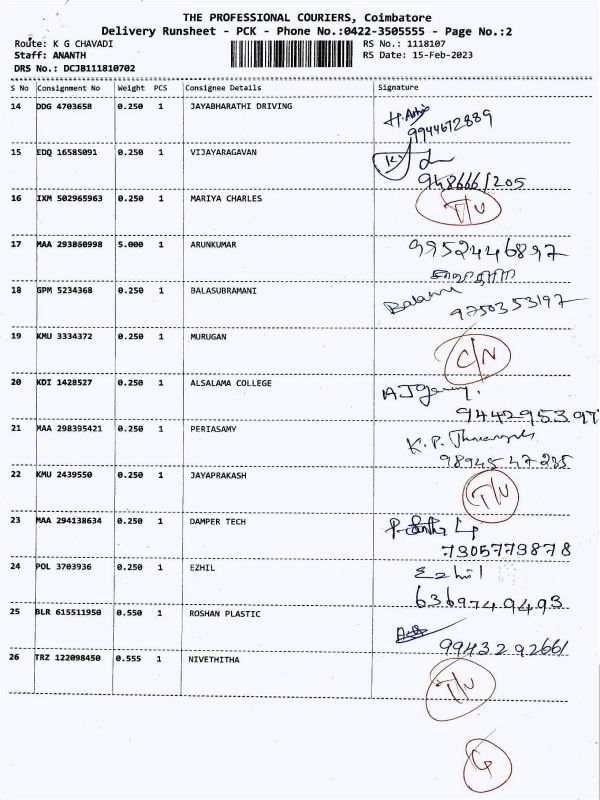 THE PROFESSIONAL COURIERS, Coimbatore
Delivery Runsheet - PCK - Phone No.:0422-3505555 - Page No.:2
Route: K G CHAVADI RS No.: 1118107
Staff: ANANTH RS Date: 15-Feb-2023
DRS No.: DCJB111810702
S No Consignment No Weight PCS Consignee Details Signature
14 DDG 4703658 0.250 1 JAYABHARATHI DRIVING
9944672889
15 EDQ 16585091 0.250 1 VIJAYARAGAVAN
948666/205
16 IXM 502965963 0.250 1 MARIYA CHARLES T/U
17 MAA 293860998 5.000 1 ARUNKUMAR 9952446897
18 GPM 5234368 0.250 1 BALASUBRAMANI
9750353197
19 KMU 3334372 0.250 1 MURUGAN C/N
20 KDI 1428527 0.250 1 ALSALAMA COLLEGE
944295397
21 MAA 298395421 0.250 1 PERIASAMY K.P.
9894547285
22 KMU 2439550 0.250 1 JAYAPRAKASH T/U
23 MAA 294138634 0.250 1 DAMPER TECH
7305773878
24 POL 3703936 0.250 1 EZHIL Ezhil
6369749493
25 BLR 615511950 0.550 1 ROSHAN PLASTIC
9943292661
26 TRZ 122098450 0.555 1 NIVETHITHA T/U